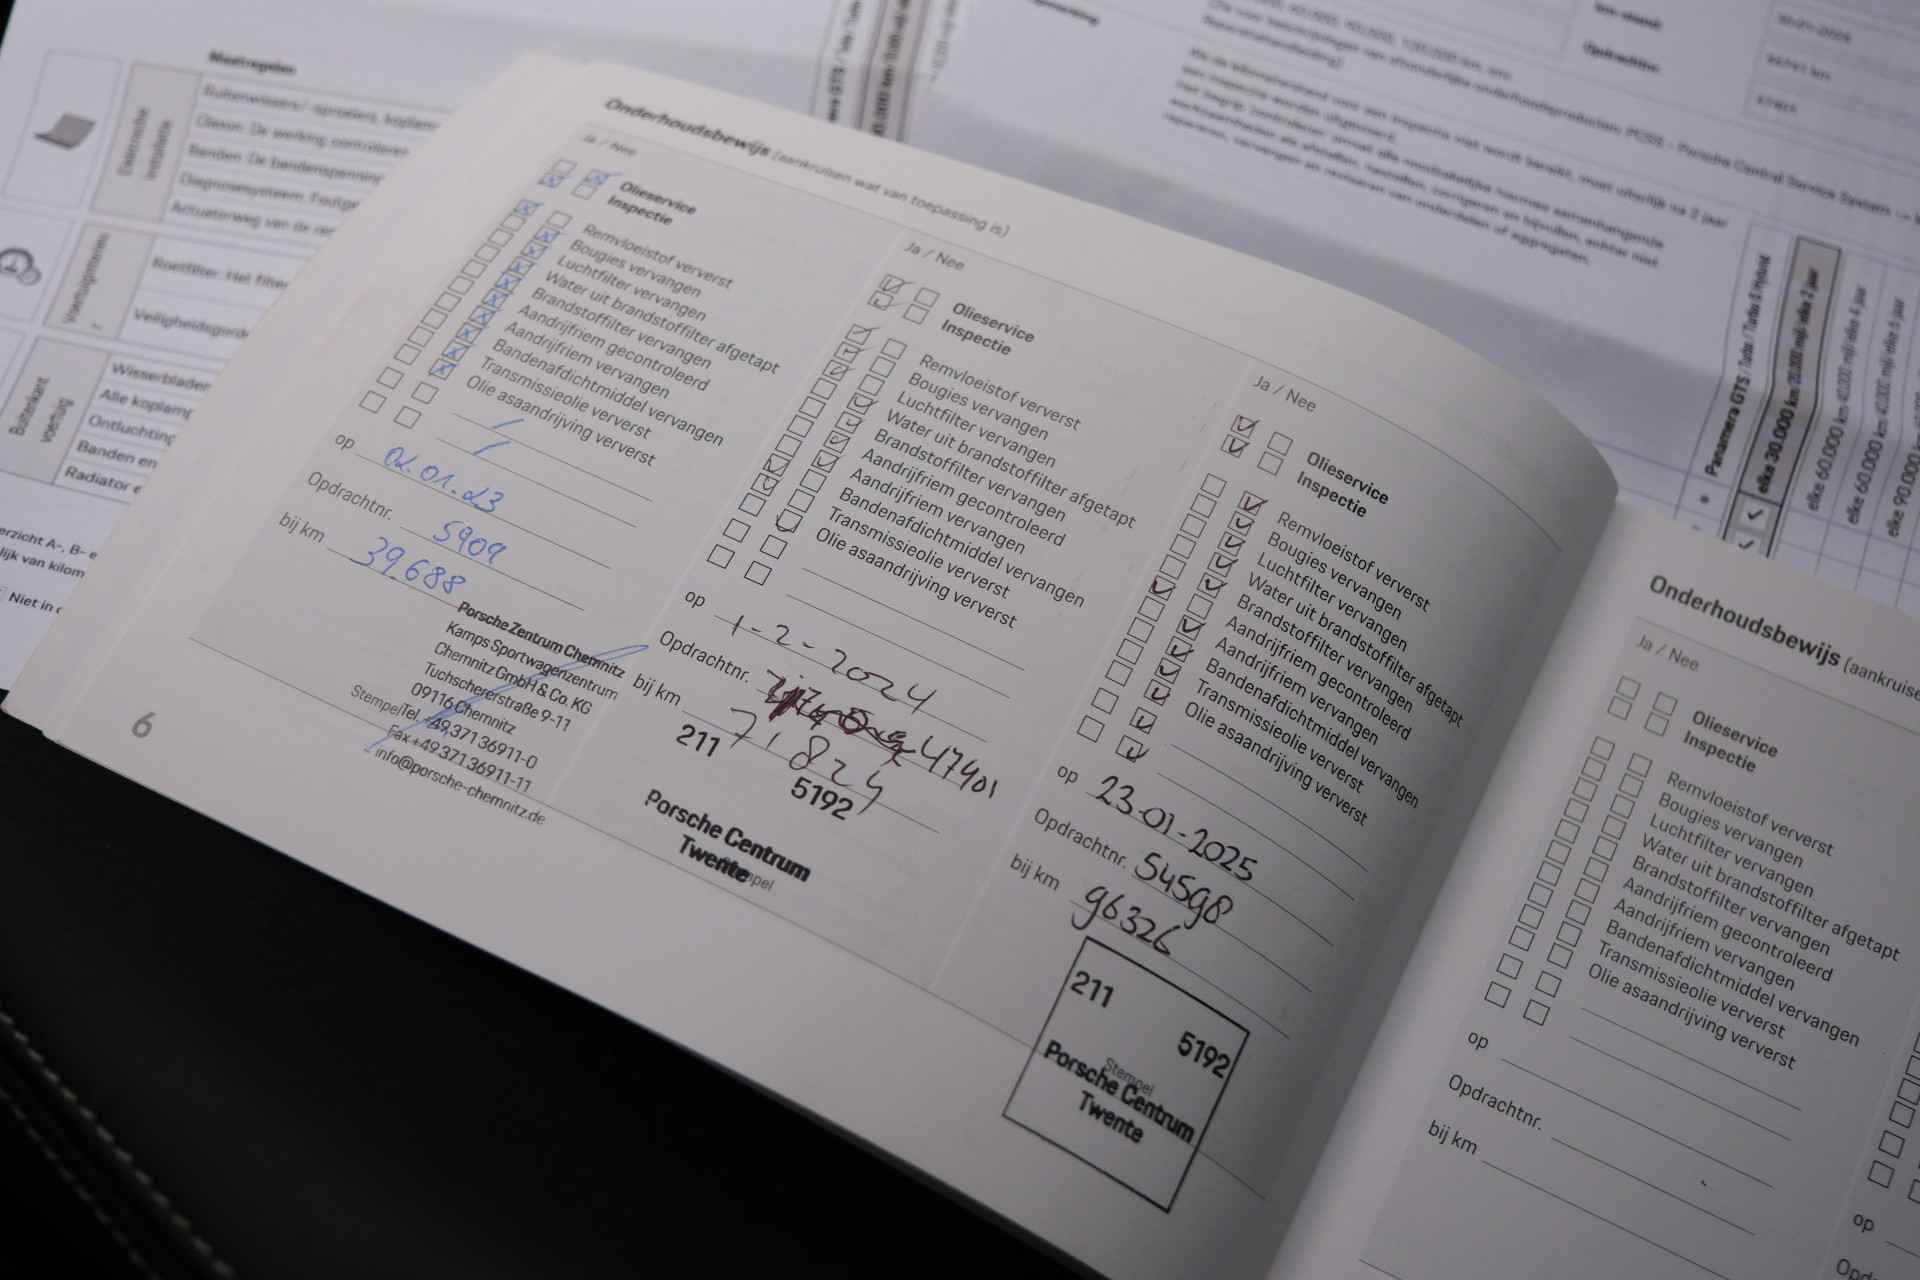 Maatregelen
Elektrische
installatie
Banden: De bandenspanning
Roetfilter: Het filter
Buitenkant
voertuig
Wisserbladen
Alle koplamp
Ontluchting
Banden en
Radiator e
Niet in
Panamera GTS / Turbo / Turbo S Hybrid
elke 30.000 km/20.000 mijl/elke 2 jaar
elke 60.000 km/40.000 mijl/elke 4 jaar
elke 60.000 km/40.000 mijl/elke 6 jaar
elke 90.000
Onderhoudsbewijs (aankruisen wat van toepassing is)
Ja / Nee
Olieservice
Inspectie
Remvloeistof ververst
Bougies vervangen
Luchtfilter vervangen
Water uit brandstoffilter afgetapt
Brandstoffilter vervangen
Aandrijfriem gecontroleerd
Aandrijfriem vervangen
Bandenafdichtmiddel vervangen
Transmissieolie ververst
Olie asaandrijving ververst
op
Opdrachtnr. 5909
bij km 39.688
Porsche Zentrum Chemnitz
Kamps Sportwagenzentrum
Chemnitz GmbH & Co. KG
Tuchschererstraße 9-11
09116 Chemnitz
Stempel Tel. +49 371 36911-0
Fax +49 371 36911-11
info@porsche-chemnitz.de
6
Ja / Nee
Olieservice
Inspectie
Remvloeistof ververst
Bougies vervangen
Luchtfilter vervangen
Water uit brandstoffilter afgetapt
Brandstoffilter vervangen
Aandrijfriem gecontroleerd
Aandrijfriem vervangen
Bandenafdichtmiddel vervangen
Transmissieolie ververst
Olie asaandrijving ververst
op 1-2-2024
Opdrachtnr. 47401
bij km 71.824
211
5192
Porsche Centrum
Twente
Stempel
Ja / Nee
Olieservice
Inspectie
Remvloeistof ververst
Bougies vervangen
Luchtfilter vervangen
Water uit brandstoffilter afgetapt
Brandstoffilter vervangen
Aandrijfriem gecontroleerd
Aandrijfriem vervangen
Bandenafdichtmiddel vervangen
Transmissieolie ververst
Olie asaandrijving ververst
op 23-01-2025
Opdrachtnr. 54598
bij km 96326
211
5192
Stempel
Porsche Centrum
Twente
Onderhoudsbewijs (aankruise
Ja / Nee
Olieservice
Inspectie
Remvloeistof ververst
Bougies vervangen
Luchtfilter vervangen
Water uit brandstoffilter afgetapt
Brandstoffilter vervangen
Aandrijfriem gecontroleerd
Aandrijfriem vervangen
Bandenafdichtmiddel vervangen
Transmissieolie ververst
Olie asaandrijving ververst
op
Opdrachtnr.
bij km
op
Opd